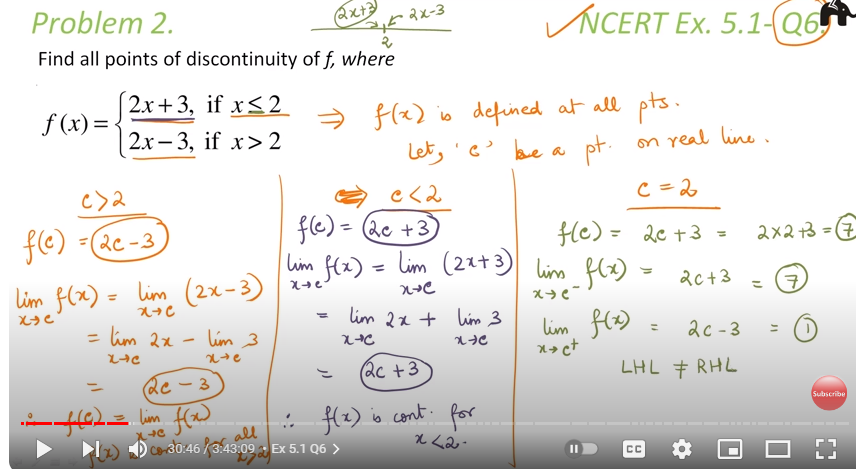 Problem 2.
2x+3
2x-3
2
NCERT Ex. 5.1- Q6.
Find all points of discontinuity of f, where
f(x) = { 2x+3, if x ≤ 2
2x−3, if x > 2
⇒ f(x) is defined at all pts.
Let, 'c' be a pt. on real line.
c>2
f(c) = 2c-3
lim x→c f(x) = lim x→c (2x-3)
= lim x→c 2x - lim x→c 3
= 2c-3
∴ f(c) = lim x→c f(x)
f(x) is cont. for all
⇒ c<2
f(c) = 2c+3
lim x→c f(x) = lim x→c (2x+3)
= lim x→c 2x + lim x→c 3
= 2c+3
∴ f(x) is cont. for
x<2.
c = 2
f(c) = 2c+3 = 2x2+3 = 7
lim x→c⁻ f(x) = 2c+3 = 7
lim x→c⁺ f(x) = 2c-3 = 1
LHL ≠ RHL
Subscribe
30:46 / 3:43:09 • Ex 5.1 Q6 >
CC